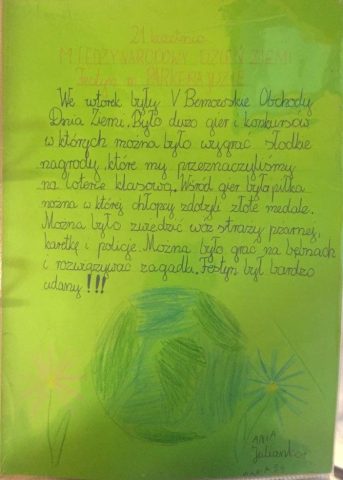 21 kwietnia
MIĘDZYNARODOWY DZIEŃ ZIEMI
Festyn w PARKU
We wtorek były V Bemowskie Obchody
Dnia Ziemi. Było dużo gier i konkursów
w których można było wygrać słodkie
nagrody, które my przeznaczyliśmy
na loterię klasową. Wśród gier była piłka
nożna w której chłopcy zdobyli złote medale.
Można było zwiedzić wóz straży pożarnej,
karetkę i policję. Można było grać na bębnach
i rozwiązywać zagadki. Festyn był bardzo
udany!!!
ANIA
Julianka